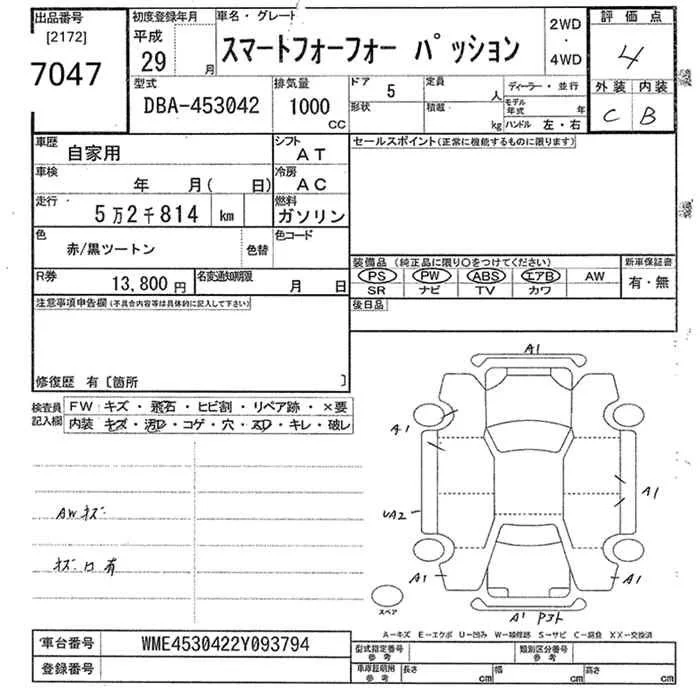 出品番号
[2172]
7047
初度登録年月
平成
29 月
車名・グレード
スマートフォーフォー パッション
2WD
・
4WD
評価点
4
外装 内装
C B
型式
DBA-453042
排気量
1000
CC
ドア
5
定員
人
ディーラー・並行
形状
積載
kg
モデル年式 年
ハンドル 左・右
車歴
自家用
シフト
AT
セールスポイント(正常に機能するものに限ります)
車検
年 月( 日)
冷房
AC
走行
5万2千814 km
燃料
ガソリン
色
赤/黒ツートン
色替
色コード
装備品 (純正品に限り○をつけてください)
新車保証書
PS PW ABS エアB AW
有・無
SR ナビ TV カワ
R券
13,800 円
名変通知期限
月 日
後日品
注意事項申告欄(不具合内容等は具体的に記入して下さい)
修復歴 有〔箇所 〕
検査員
記入欄
FW キズ・飛石・ヒビ割・リペア跡・×要
内装 キズ・汚レ・コゲ・穴・スレ・キレ・破レ
AWキズ
キズ凹有
A1
A1
A1
UA2
A1
A1
A1 Pコト
スペア
A－キズ E－エクボ U－凹み W－補修跡 S－サビ C－腐食 XX－交換済
車台番号
WME4530422Y093794
登録番号
型式指定番号
参考
類別区分番号
参考
車庫証明用
参考
長さ cm
幅 cm
高さ cm